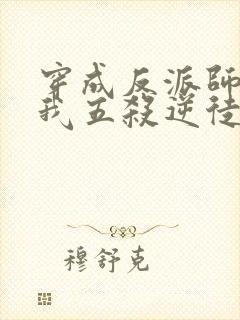 穿成反派師
我五殺逆徒
穆舒克